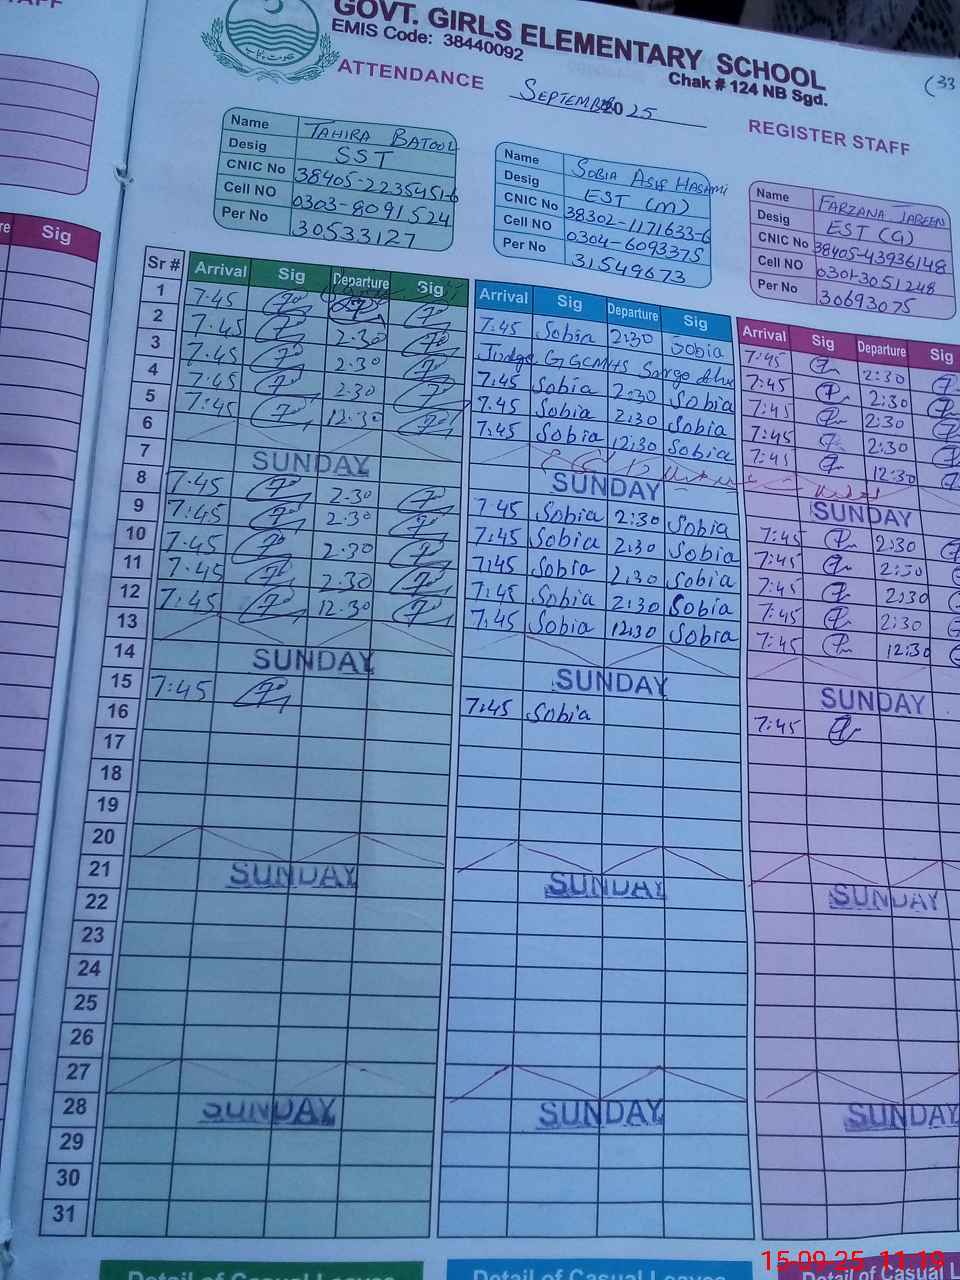 GOVT. GIRLS ELEMENTARY SCHOOL
EMIS Code: 38440092
Chak # 124 NB Sgd.
(33
ATTENDANCE
SEPTEMBER 2025
REGISTER STAFF
Name TAHIRA BATOOL
Desig SST
CNIC No 38405-2235451-6
Cell NO 0303-8091524
Per No 30533127
Name SOBIA ASIF HASHMI
Desig EST (M)
CNIC No 38302-1171633-6
Cell NO 0304-6093375
Per No 31549673
Name FARZANA JABEEN
Desig EST (G)
CNIC No 38405-43936148
Cell NO 0301-3051248
Per No 30693075
Sig
Sr # Arrival Sig Departure Sig Arrival Sig Departure Sig Arrival Sig Departure Sig
1 7.45 7:45 Sobia 2:30 Sobia 7:45 2:30
2 7.45 2:30 7:45 2:30
3 7.45 2:30 7:45 Sobia 2:30 Sobia 7:45 2:30
4 7.45 2:30 7:45 Sobia 2:30 Sobia 7:45 2:30
5 7:45 12:30 7:45 Sobia 12:30 Sobia 7:45 12:30
6
7 SUNDAY SUNDAY SUNDAY
8 7.45 2.30 7.45 Sobia 2:30 Sobia 7:45 2:30
9 7.45 2.30 7:45 Sobia 2:30 Sobia 7:45 2:30
10 7.45 2.30 7:45 Sobia 2:30 Sobia 7:45 2:30
11 7.45 2:30 7:45 Sobia 2:30 Sobia 7:45 2:30
12 7:45 12.30 7:45 Sobia 12:30 Sobia 7:45 12:30
13
14 SUNDAY SUNDAY SUNDAY
15 7:45 7:45 Sobia 7:45
16
17
18
19
20
21 SUNDAY SUNDAY SUNDAY
22
23
24
25
26
27
28 SUNDAY SUNDAY SUNDAY
29
30
31
Detail of Casual Leaves Detail of Casual Leaves Detail of Casual L
15-09-25 11:19